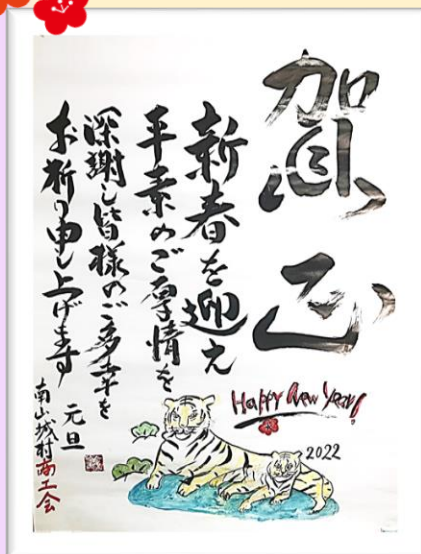 賀正
新春を迎え
平素のご厚情を
深謝し皆様のご多幸を
お祈り申し上げます
元旦
南山城村商工会
Happy New Year!
2022